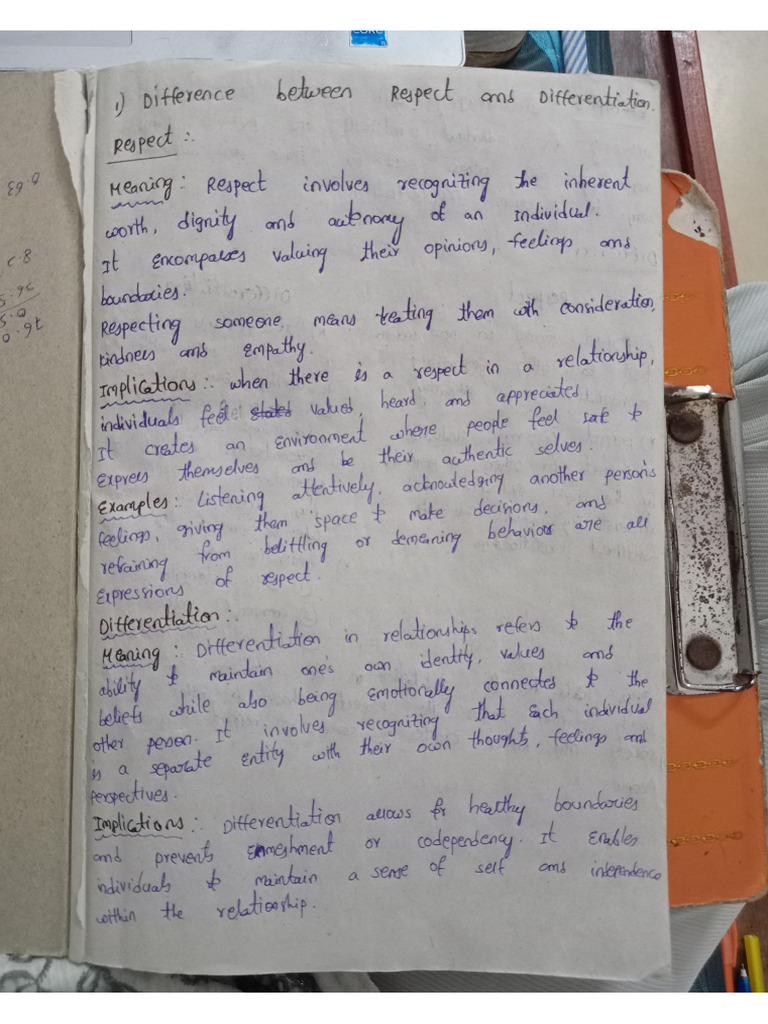 CORE
1) Difference between Respect and Differentiation.
Respect :.
Meaning : Respect involves recognizing the inherent
worth, dignity and autonomy of an individual.
It encompasses valuing their opinions, feelings and
boundaries.
Respecting someone means treating them with consideration,
kindness and empathy.
Implications :. when there is a respect in a relationship,
individuals feel valued, heard, and appreciated.
It creates an environment where people feel safe to
express themselves and be their authentic selves.
Examples : Listening attentively, acknowledging another person's
feelings, giving them space to make decisions, and
refraining from belittling or demeaning behaviors are all
expressions of respect.
Differentiation :.
Meaning : Differentiation in relationships refers to the
ability to maintain one's own identity, values and
beliefs while also being emotionally connected to the
other person. It involves recognizing that each individual
is a separate entity with their own thoughts, feelings and
perspectives.
Implications :. Differentiation allows for healthy boundaries
and prevents enmeshment or codependency. It enables
individuals to maintain a sense of self and independence
within the relationship.